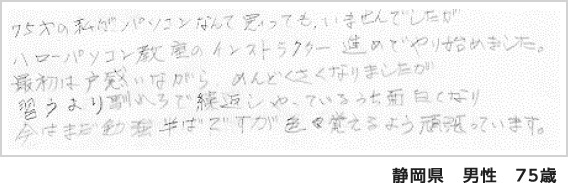 75才の私がパソコンなんて思っても、いませんでしたが
ハローパソコン教室のインストラクター進めでやり始めました。
最初は戸惑いながら めんどくさくなりましたが
習うより慣れろで繰返しや、ているうち面白くなり
今はまだ勉強半ばですが色々覚えるよう頑張っています。
静岡県 男性 75歳